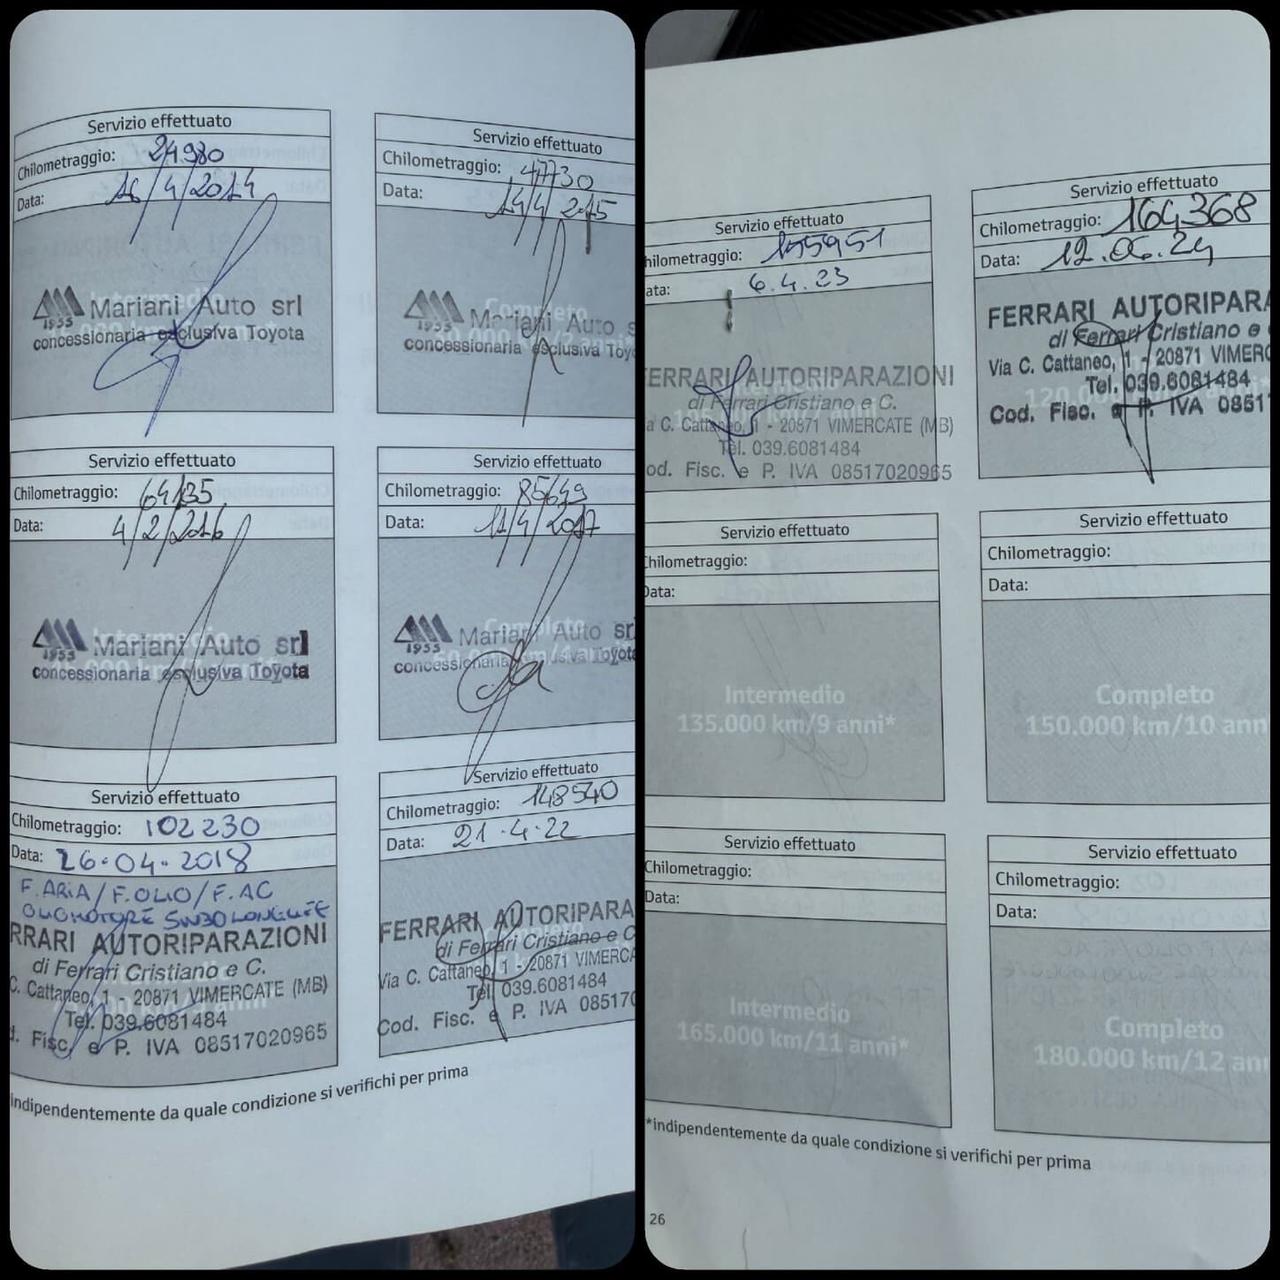 Servizio effettuato
Chilometraggio: 24980
Data: 16/4/2014
1955 Mariani Auto srl
concessionaria esclusiva Toyota
Servizio effettuato
Chilometraggio: 47730
Data: 14/4/2015
Completo
1955 Mariani Auto s
concessionaria esclusiva Toyo
Servizio effettuato
Chilometraggio: 64135
Data: 4/2/2016
Intermedio
1955 Mariani Auto srl
concessionaria esclusiva Toyota
Servizio effettuato
Chilometraggio: 85649
Data: 11/4/2017
Completo
1955 Mariani Auto srl
concessionaria esclusiva Toyota
Servizio effettuato
Chilometraggio: 102230
Data: 26.04.2018
F. ARIA/F.OLIO/F.AC
OLIO MOTORE 5W30 LONGLIFE
RRARI AUTORIPARAZIONI
di Ferrari Cristiano e C.
C. Cattaneo, 1 - 20871 VIMERCATE (MB)
Tel. 039.6081484
d. Fisc. e P. IVA 08517020965
Servizio effettuato
Chilometraggio: 148540
Data: 21.4.22
FERRARI AUTORIPARA
di Ferrari Cristiano e C
Via C. Cattaneo, 1 - 20871 VIMERCA
Tel. 039.6081484
Cod. Fisc. e P. IVA 085170
indipendentemente da quale condizione si verifichi per prima
Servizio effettuato
hilometraggio: 155951
ata: 6.4.23
ERRARI AUTORIPARAZIONI
di Ferrari Cristiano e C.
a C. Cattaneo, 1 - 20871 VIMERCATE (MB)
Tel. 039.6081484
od. Fisc. e P. IVA 08517020965
Servizio effettuato
Chilometraggio: 164368
Data: 12.06.24
FERRARI AUTORIPARA
di Ferrari Cristiano e
Via C. Cattaneo, 1 - 20871 VIMERC
Tel. 039.6081484
Cod. Fisc. e P. IVA 0851
Servizio effettuato
Chilometraggio:
Data:
Intermedio
135.000 km/9 anni*
Servizio effettuato
Chilometraggio:
Data:
Completo
150.000 km/10 ann
Servizio effettuato
Chilometraggio:
Data:
Intermedio
165.000 km/11 anni*
Servizio effettuato
Chilometraggio:
Data:
Completo
180.000 km/12 ann
*indipendentemente da quale condizione si verifichi per prima
26